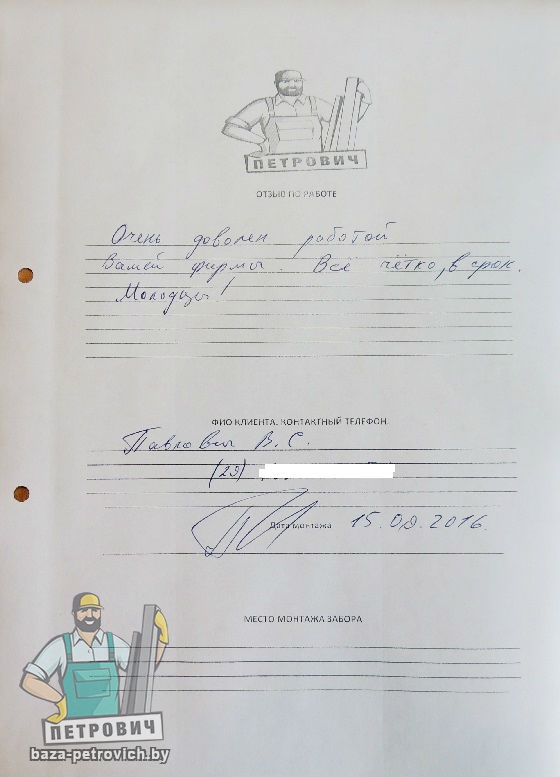 ПЕТРОВИЧ
ОТЗЫВ ПО РАБОТЕ
Очень доволен работой
Вашей фирмы. Всё чётко, в срок.
Молодцы!
ФИО КЛИЕНТА. КОНТАКТНЫЙ ТЕЛЕФОН.
Павлович В. С.
(29)
Дата монтажа 15.08.2016.
МЕСТО МОНТАЖА ЗАБОРА
ПЕТРОВИЧ
baza-petrovich.by